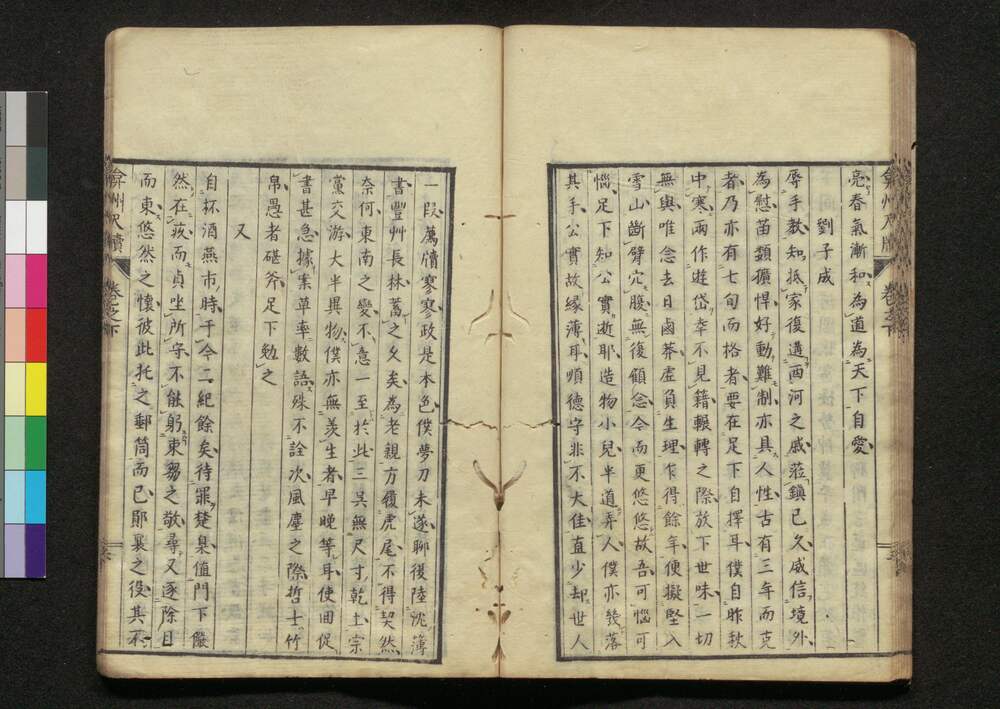 亮春氣漸和為道為天下自愛
劉子成
辱手教知抵家復遘西河之戚蒞鎮已久威信境外
為慰苗類獷悍好動難制亦具人性古有三年而克
者乃亦有七旬而格者要在足下自擇耳僕自昨秋
中寒兩作遊岱幸不見籍輾轉之際放下世味一切
無與唯念去日鹵莽虛負生理乍得餘年便擬堅入
雪山斷臂穴腹無復顧念今而更悠悠故吾可惱可
惱足下知公實逝耶造物小兒半道弄人僕亦發落
其手公實故緣薄耳順德守非不大佳直少却世人
一段薦牘寥寥政是本色僕夢刀未遂聊復陸沈簿
書豐艸長林蒿之久矣為老親方履虎尾不得契然
奈何東南之變不意一至於此三吳無尺寸乾土宗
黨交游大半異物僕亦無羨生者早晚等耳使回促
書甚急據案草率數語殊不詮次風塵之際哲士竹
帛愚者碪斧足下勉之
又
自杯酒燕市時于今二紀餘矣待罪楚臬值門下儼
然在疚而貞坐所守不能躬東芻之敬尋又逐除目
而東悠然之懷彼此托之郵筒而已鄖襄之役其不
弇州尺牘
卷之下
弇州尺牘
卷之下